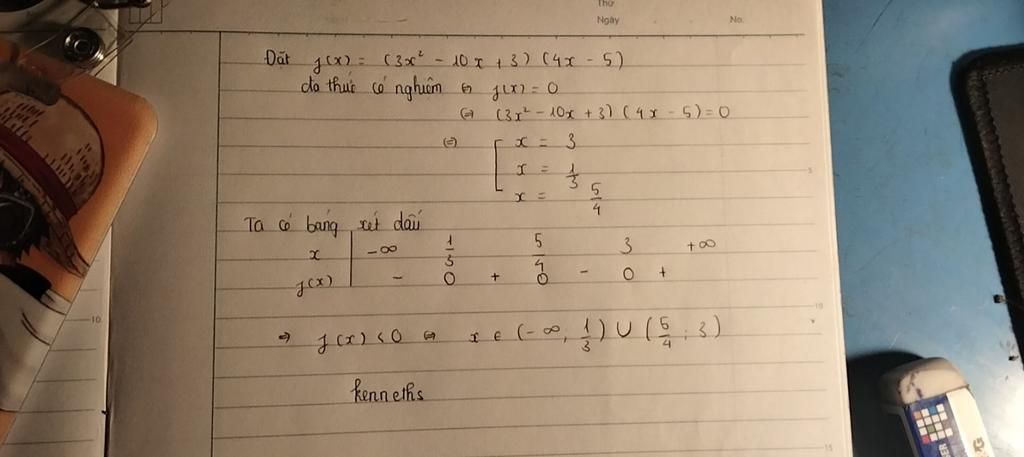 Thứ
Ngày No.
Đặt f(x) = (3x² - 10x + 3) (4x - 5)
đa thức có nghiệm ⇔ f(x) = 0
⇔ (3x² - 10x + 3) (4x - 5) = 0
⇔ [ x = 3
x = 1/3
x = 5/4
Ta có bảng xét dấu
x | -∞ 1/3 5/4 3 +∞
f(x) | - 0 + 0 - 0 +
⇒ f(x) < 0 ⇔ x ∈ (-∞, 1/3) ∪ (5/4 ; 3)
kenneths
5
10
10
15